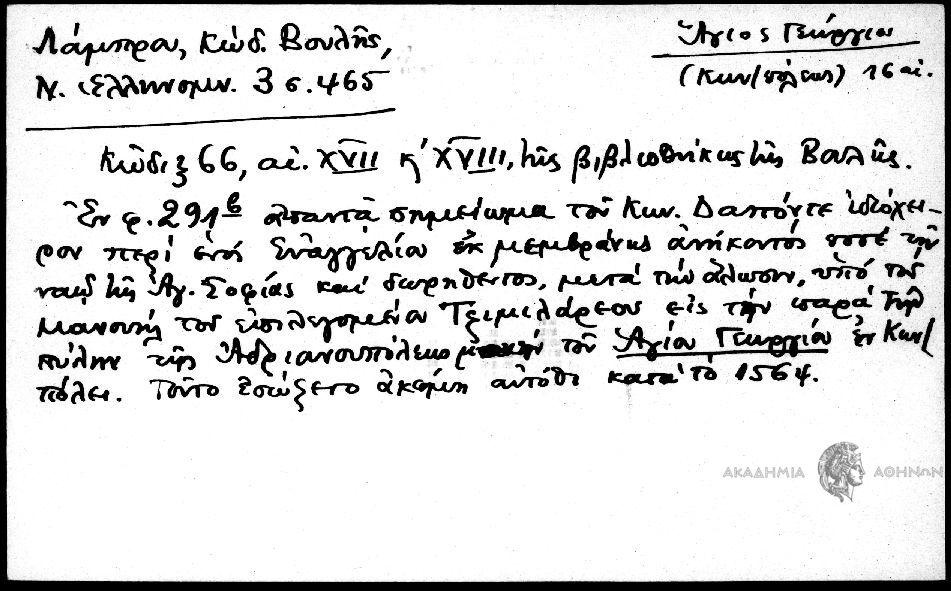 Λάμπρου, Κώδ. Βουλῆς,
Ν. Ἑλληνομν. 3 σ. 465
Ἅγιος Γεώργιος
(Κων/πόλεως) 16 αἰ.
Κῶδιξ 66, αἰ. XVII κ' XVIII, τῆς βιβλιοθήκης τῆς Βουλῆς.
Ἐν φ. 291β ἀπαντᾷ σημείωμα τοῦ Κων. Δαπόντε ἰδιόχει-
ρον περί ἑνός Εὐαγγελίου ἐκ μεμβράνης ἀνήκοντός ποτέ τῷ
ναῷ τῆς Ἁγ. Σοφίας καί δωρηθέντος, μετά τήν ἅλωσιν, ὑπό τοῦ
Μανουήλ τοῦ ἐπιλεγομένου Τζιμιλάρεου εἰς τήν παρά τήν
πύλην τῆς Ἀδριανουπόλεως μονήν τοῦ Ἁγίου Γεωργίου ἐν Κων/
πόλει. Τοῦτο ἐσώζετο ἀκόμη αὐτόθι κατά τό 1564.
ΑΚΑΔΗΜΙΑ ΑΘΗΝΩΝ